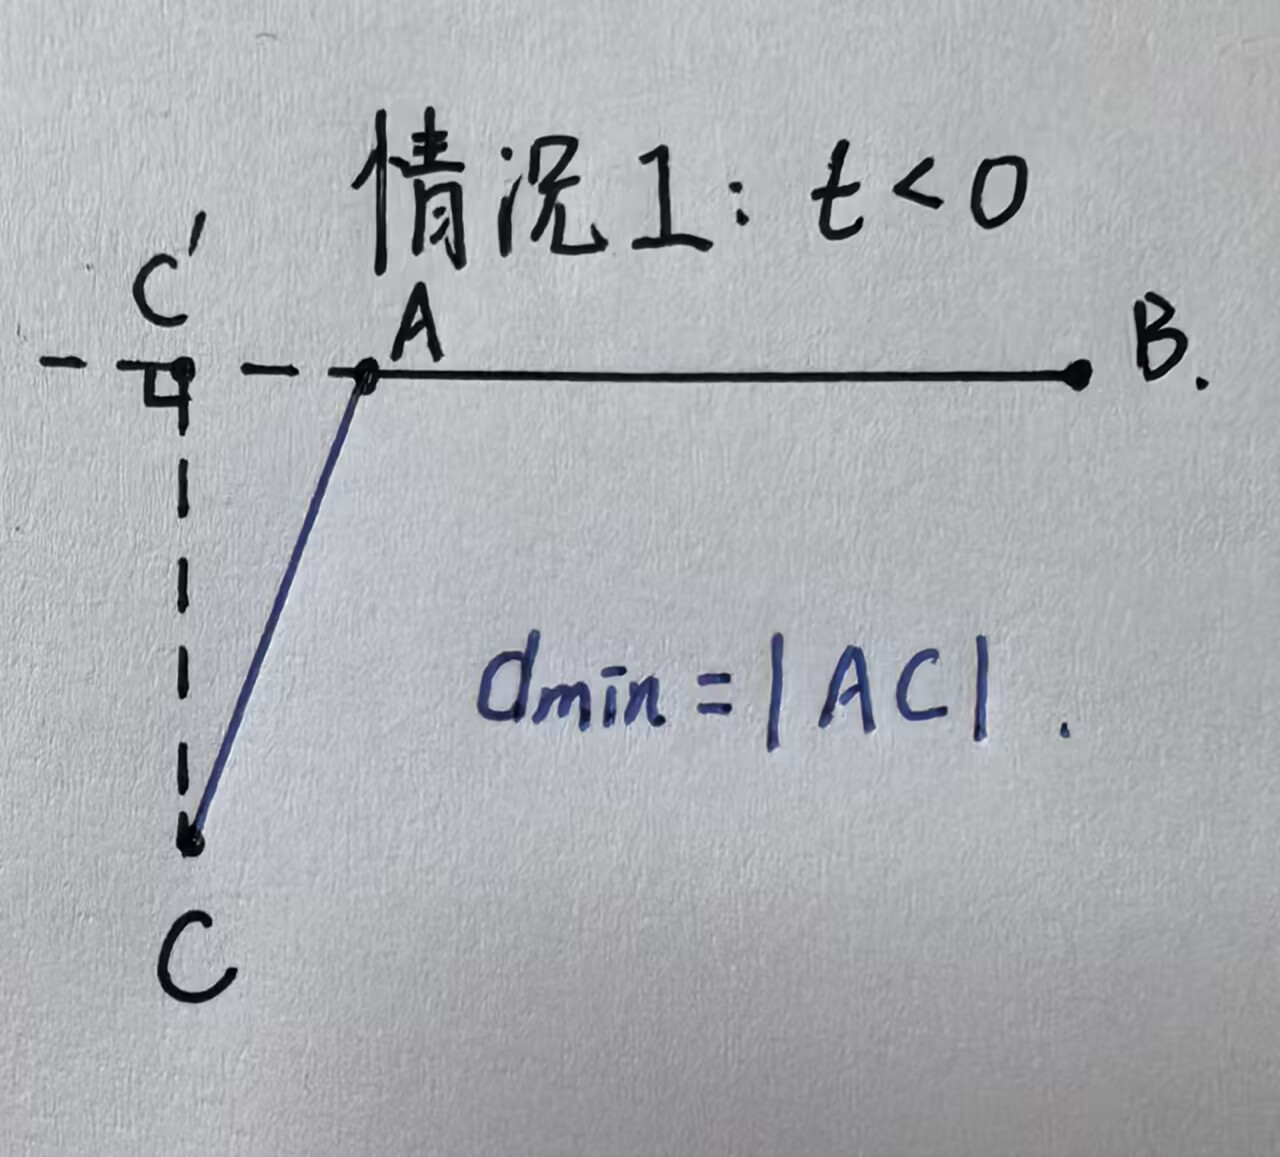 情况1: t<0
C'
A
B.
dmin=|AC|.
C